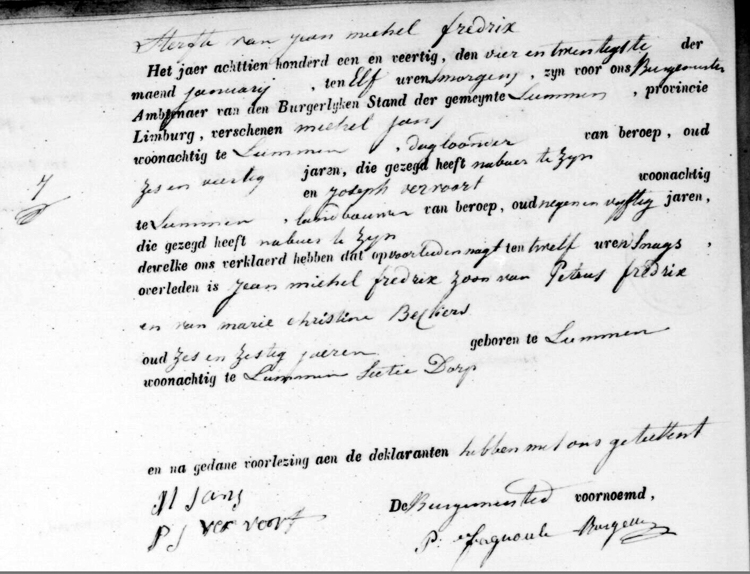 Sterfte van jean michel fredrix
Het jaer achttien honderd een en veertig, den vier en twentigste der
maend januarij, ten Elf uren smorgens, zyn voor ons Burgemeester
Ambtenaer van den Burgerlyken Stand der gemeynte Lummen, provincie
Limburg, verschenen michel jans
woonachtig te Lummen, dagloonder van beroep, oud
zes en veertig jaren, die gezegd heeft nabuer te zyn
7
en joseph vervoort woonachtig
te Lummen, landbouwer van beroep, oud negen en vyftig jaren,
die gezegd heeft nabuer te zyn
dewelke ons verklaerd hebben dat op voorleden nagt ten twelf uren snags,
overleden is jean michel fredrix zoon van Peterus fredrix
en van marie christine
oud zes en zestig jaeren geboren te Lummen
woonachtig te Lummen Sectie Dorp
en na gedane voorlezing aen de deklaranten hebben met ons geteekent
M jans
P J vervoort
De Burgemeester voornoemd,
P.